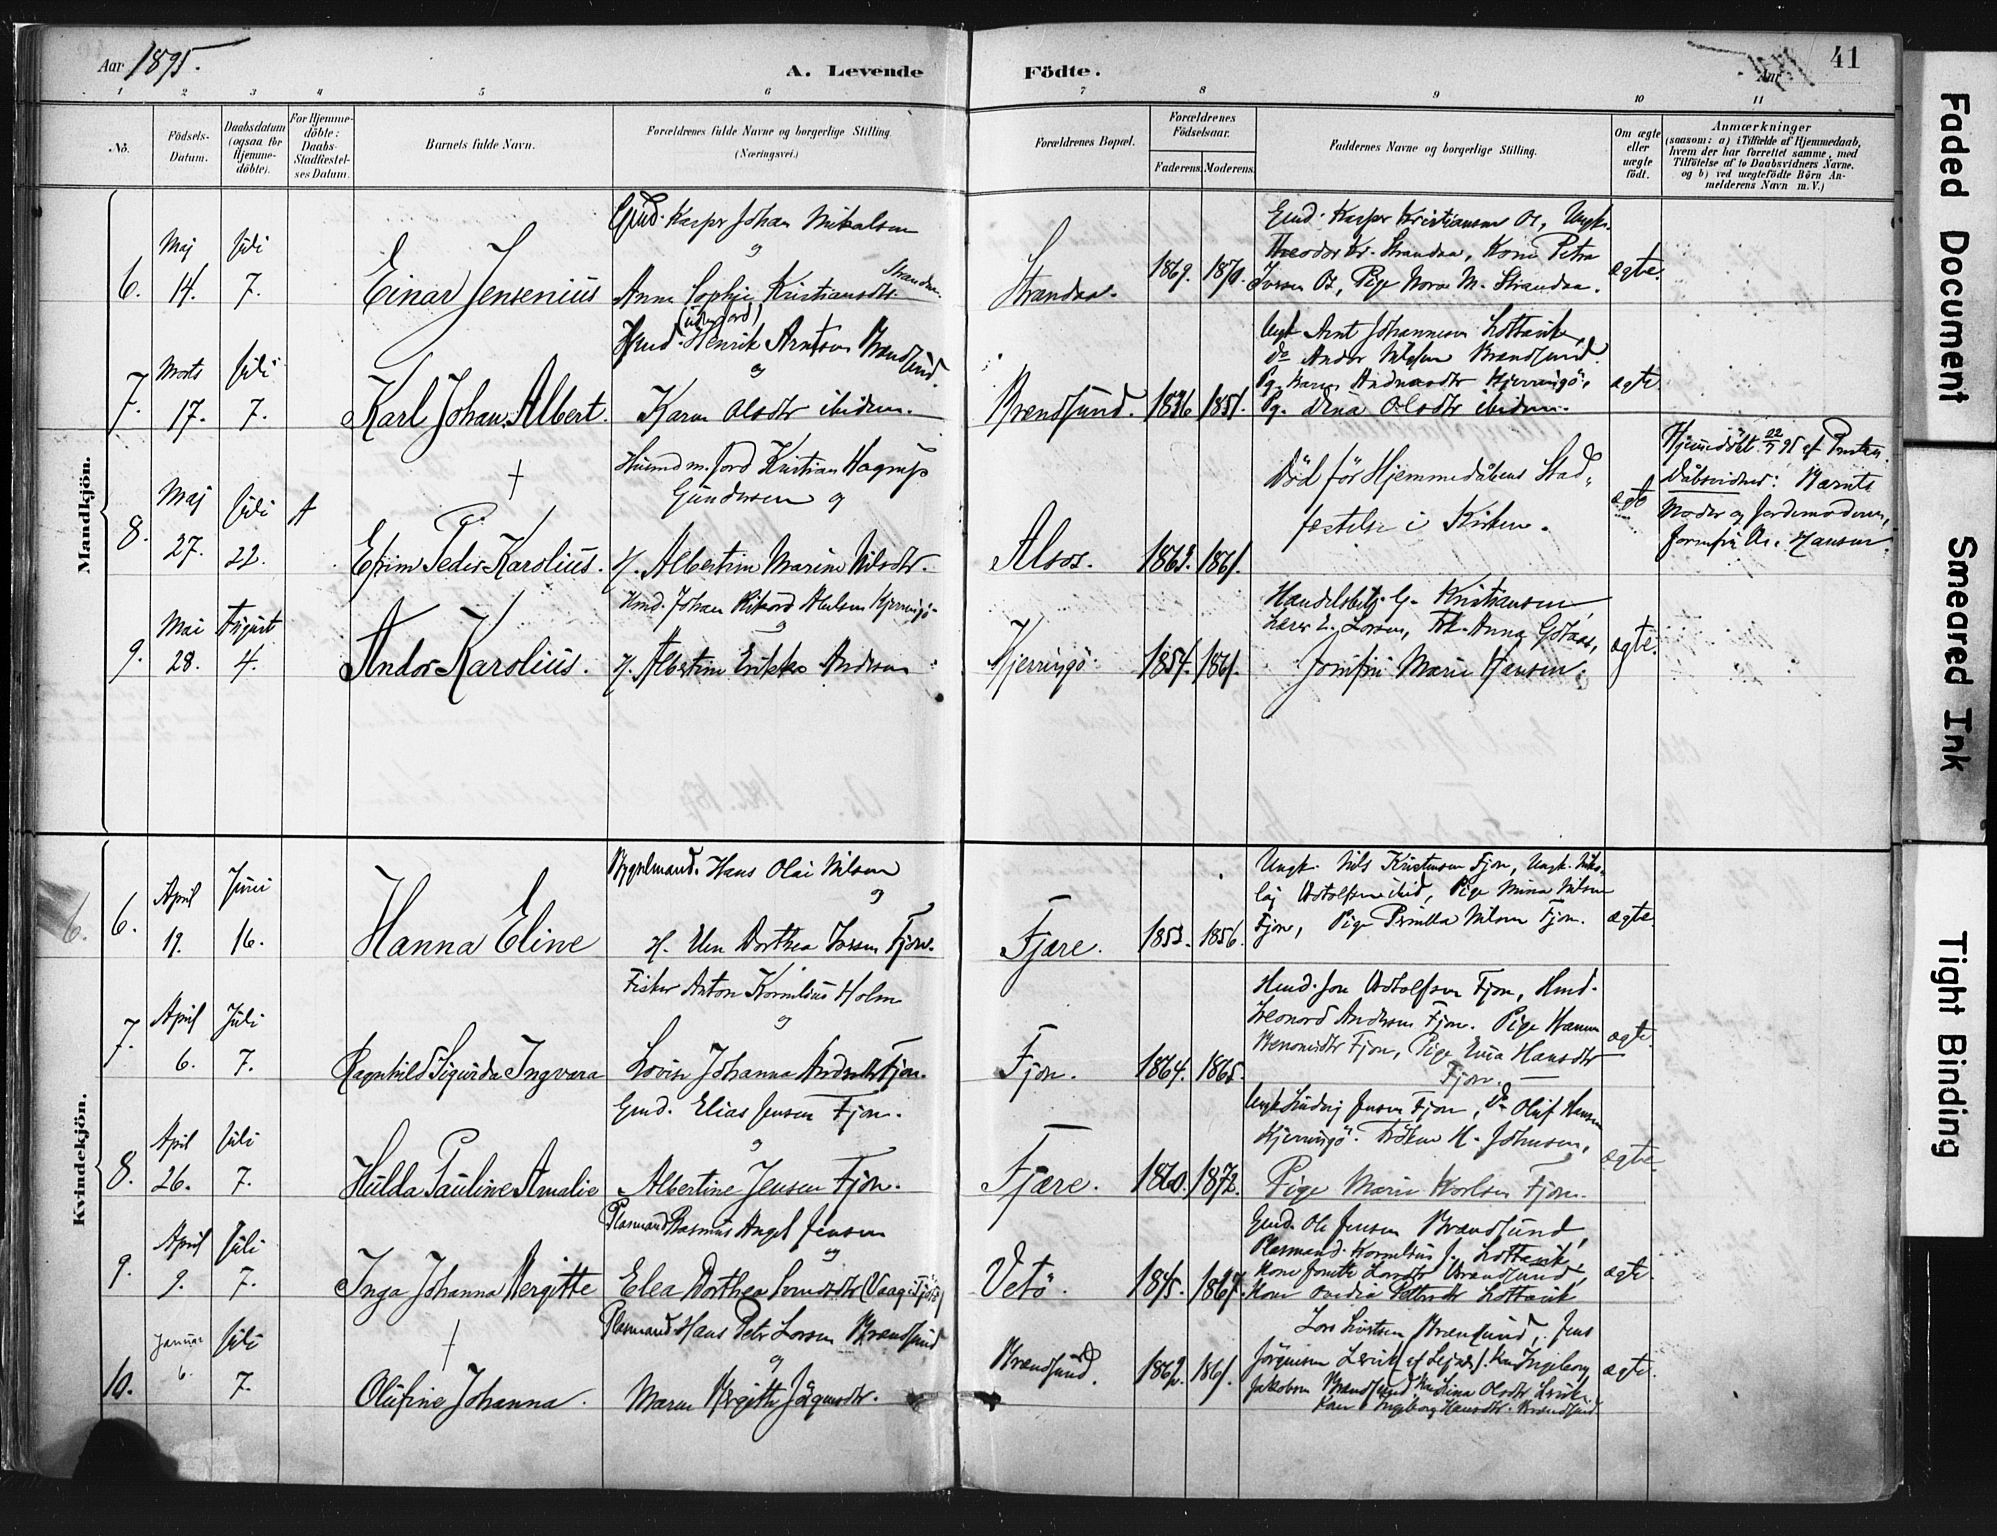 Aar 1895.
A. Levende Födte.
Anm
41
1 2 3 4 5 6 7 8 9 10 11
No.
Födsels-Datum.
Daabsdatum (ogsaa for Hjemme-döbte).
For Hjemme-döbte: Daabs-Stadfæstel-ses Datum.
Barnets fulde Navn.
Forældrenes fulde Navne og borgerlige Stilling. (Næringsvei.)
Forældrenes Bopæl.
Forældrenes Födselsaar.
Faderens. Moderens.
Faddernes Navne og borgerlige Stilling.
Om ægte eller uægte födt.
Anmærkninger
(saasom: a) i Tilfælde af Hjemmedaab,
hvem der har forrettet samme, med
Tilföielse af to Daabsvidners Navne.
og b) ved uægtefödte Börn An-
melderens Navn m. V.)
Mandkjön.
6. Maj 14. Juli 7.
Einar Jensenius
Gmd. Kasper Johan Mikalsen
og
Anna Sophie Kristiansdtr. Strandaa.
Strandaa. 1869. 1870.
Gmd. Kasper Kristiansen Os, Ungk.
Theodor Kr. Strandaa, Kone Petra
Iversen Os, Pige Nora M. Strandaa.
ægte.
7. Marts 17. Juli 7.
Karl Johan Albert.
(uden jord)
Hmd. Henrik Arntsen Brændsund.
og
Karen Olsdtr ibidem.
Brændsund. 1836 1851.
Ungk Arnt Johannesen Lottavik,
do Andor Nilsen Brændsund.
Pg. Karen Andreasdtr Kjerringö,
Pg. Dina Olsdtr ibidem.
ægte
8. Maj 27. Juli 22.
†
Efrim Peder Karolius.
Husmd m. jord Kristian Hagrup
Gundersen og
H. Albertine Marine Nilsdtr.
Alsos. 1863. 1861.
Död för Hjemmedåbens Stad-
festelse i Kirken.
ægte
Hjemmedöbt 22/7 95 af Presten.
Dåbsvidner: Barnets
Moder og Jordemoderen,
9. Mai 28. August 4.
Andor Karolius.
Hmd. Johan Rikard Kjerringö
og
H. Albertine Andersen
Kjerringö. 1854. 1861.
Handelsbetj. G. Kristiansen,
Lærer E. Larsen, Frk. Anna
Josefine Marie Hansen.
ægte.
Kvindekjön.
6. 6. April 19. Juni 16.
Hanna Eline
Bygselmand. Hans Olai Nilsen
og
H. Elen Dorthea Iversen Fjore.
Fjære. 1853. 1856.
Ungk. Nils Kristensen Fjore, Ungk. Niko-
laj Adolfsen ibid, Pige Mina Nilsen
Fjore, Pige Nilsen Fjore.
ægte.
7. April 6. Juli 7.
Ragnhild Sigurda Ingvara
Fisker Anton Kornelius Holm
og
Lovise Johanna Fjore.
Fjore. 1864. 1865.
Hmd. Jon Adolfsen Fjore, Hmd.
Leonard Andersen Fjore. Pige Hanna
Benonisdtr Fjore, Pige Hansdtr
Fjore.
ægte.
8. April 26. Juli 7.
Hulda Pauline Amalie
Gmd. Elias Jensen Fjore.
og
Albertine Jensen Fjore.
Fjære. 1860. 1872.
Ungk Ludvig Jensen Fjore, do Oluf Hansen
Kjerringö. Fröken H. Johnsen,
Pige Marie Karlsen Fjore.
ægte.
9. April 9. Juli 7.
Inga Johanna Bergitte
Plasmand Rasmus Angel Jensen
og
Elea Dorthea
Vetö. 1845. 1867.
Gmd. Ole Jensen Brændsund,
Plasmand. Kornelius J. Lottavik,
Kone Brændsund,
Kone Ovedia Pettersdtr Lottavik
ægte.
10. Januar 6. Juli 7.
†
Olufine Johanna.
Plasmand Hans Peter Larsen Brændsund
og
Maren Bergitte Jörgensdtr.
Brændsund. 1862. 1861.
Lars Brændsund, Jens
Jörgensen
Jakobsen Brændsund Olsdtr
Ingeborg Hansdtr. Brændsund.
ægte.
Faded Document
Smeared Ink
Tight Binding